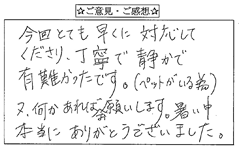 ☆ご意見・ご感想☆
今回とても早くに対応して
くださり、丁寧で静かで
有難かったです。(ペットがいる為)
又、何かあればお願いします。暑い中
本当にありがとうございました。